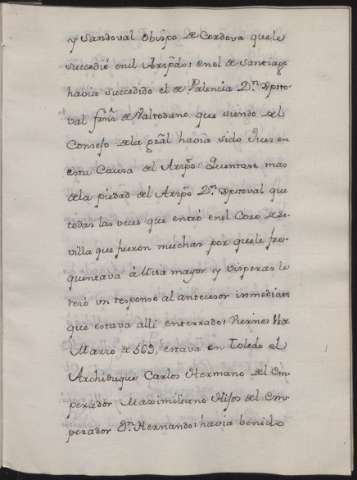 y Sandoval Obispo de Cordova que le
succedió en il Arzpdo: en el de Santiago
havia succedido el de Palencia Dn. Xpto
val ferns. de Valtodano que siendo del
Consejo de la gral havia sido Juez en
esta Causa del Arzpo: Quentase mas
de la piedad del Arzpo Dn. Xptoval que
todas las veces que entró en el Coro de Se
villa que fueron muchas por que le fre
quentava á Misa mayor y Visperas le
rezó un responso al antecesor inmediato
que estava alli enterrado: Viernes
Marzo de 569, estava en Toledo el
Archiduque Carlos Hermano del Em
perador Maximiliano Hijos del Em
perador Dn. Hernando: havia benido